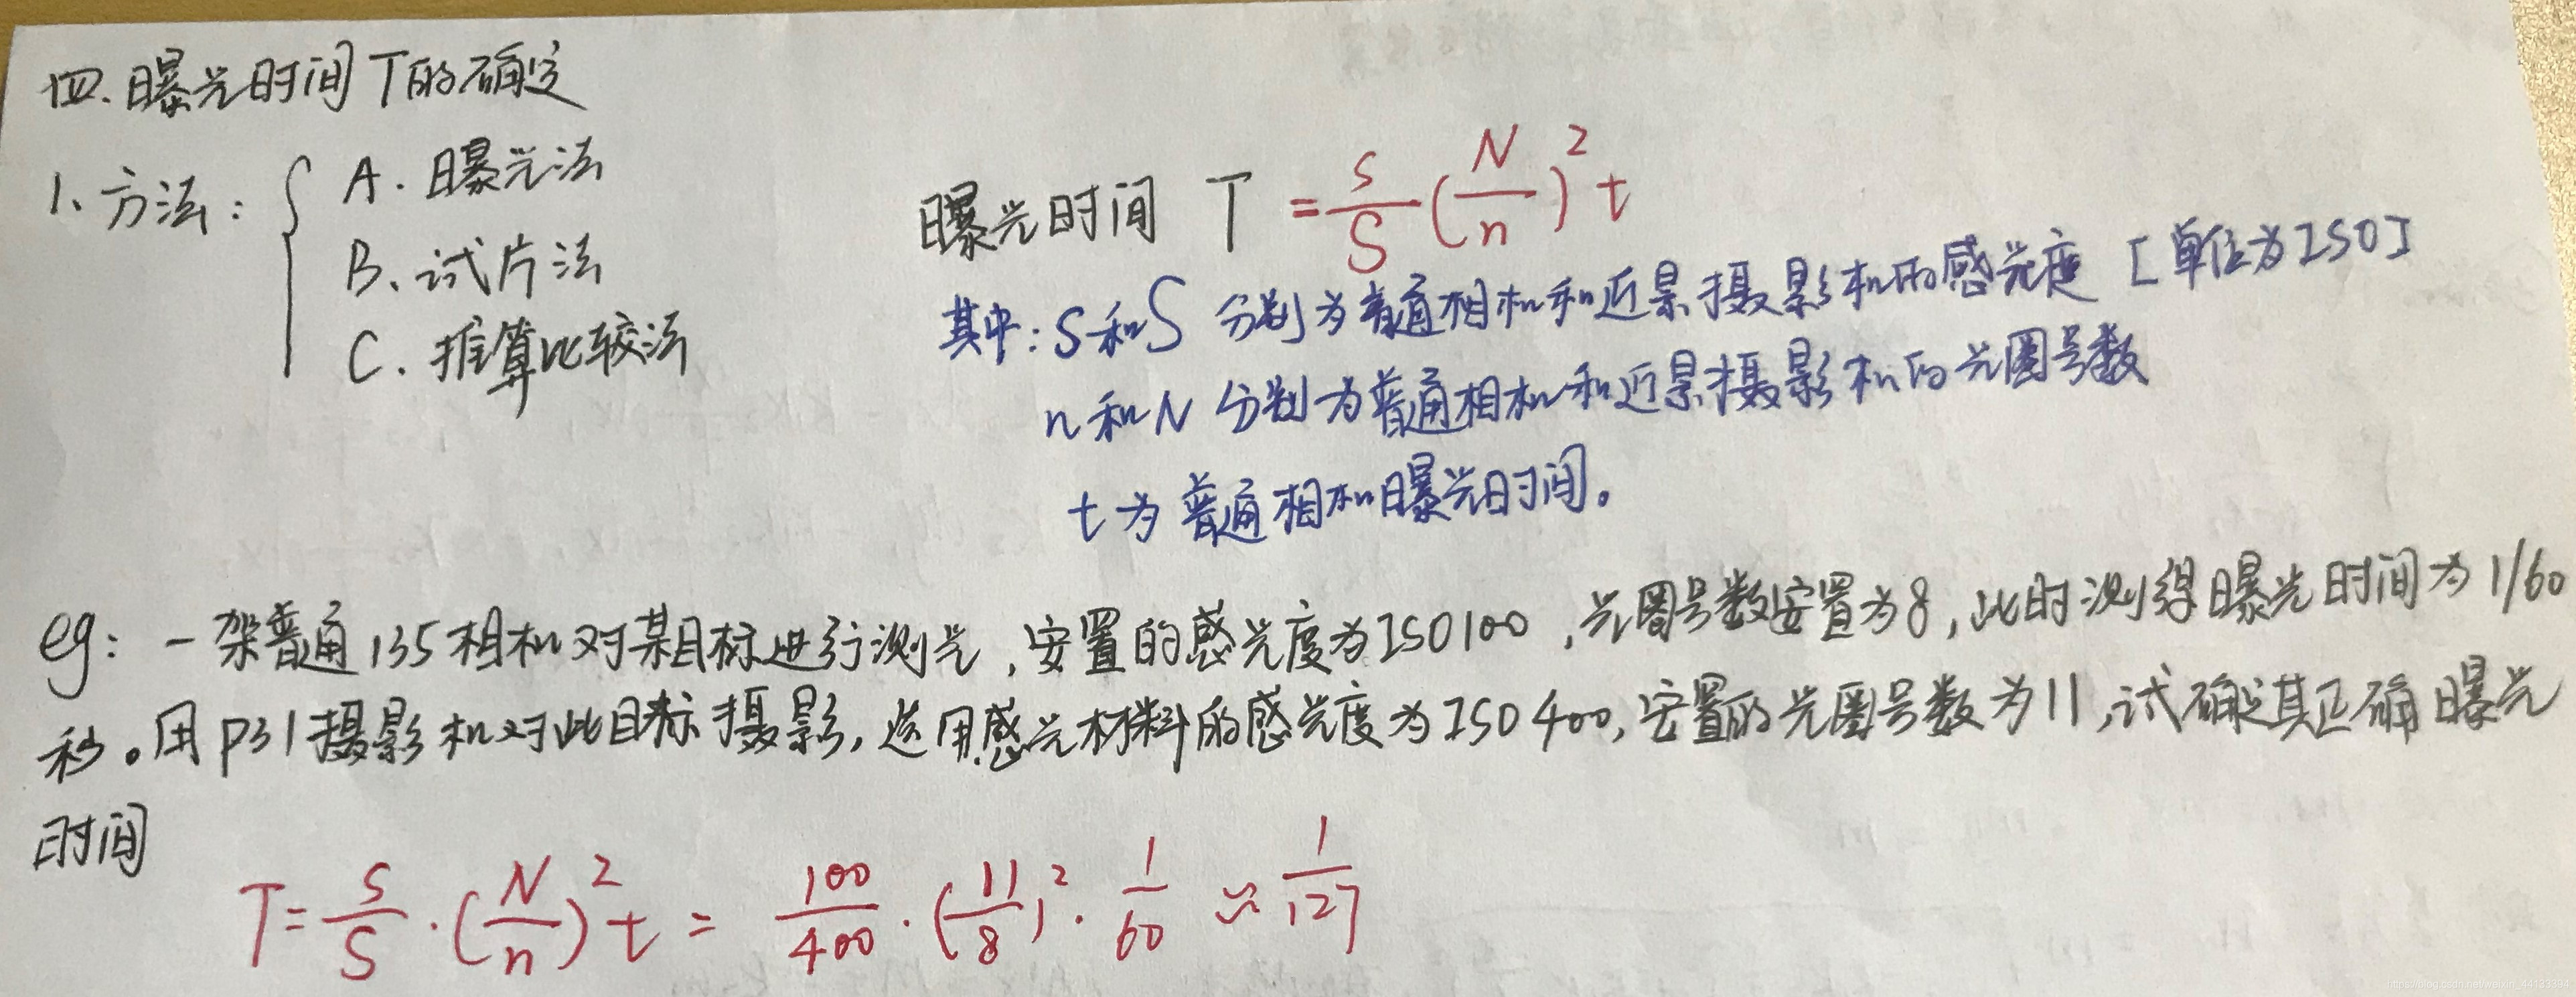 四.曝光时间T的确定
1、方法:
A.曝光法
B、试片法
C.推算比较法
曝光时间 T = s/S (N/n)² t
其中:s和S 分别为普通相机和近景摄影机的感光度 [单位为ISO]
n和N 分别为普通相机和近景摄影机的光圈号数
t为普通相机曝光时间。
eg: 一架普通135相机对某目标进行测光,安置的感光度为ISO100,光圈号数安置为8,此时测得曝光时间为1/60
秒。用P31摄影机对此目标摄影,选用感光材料的感光度为ISO400,安置的光圈号数为11,试确定其正确曝光
时间
T = s/S · (N/n)² t = 100/400 · (11/8)² · 1/60 ≈ 1/127